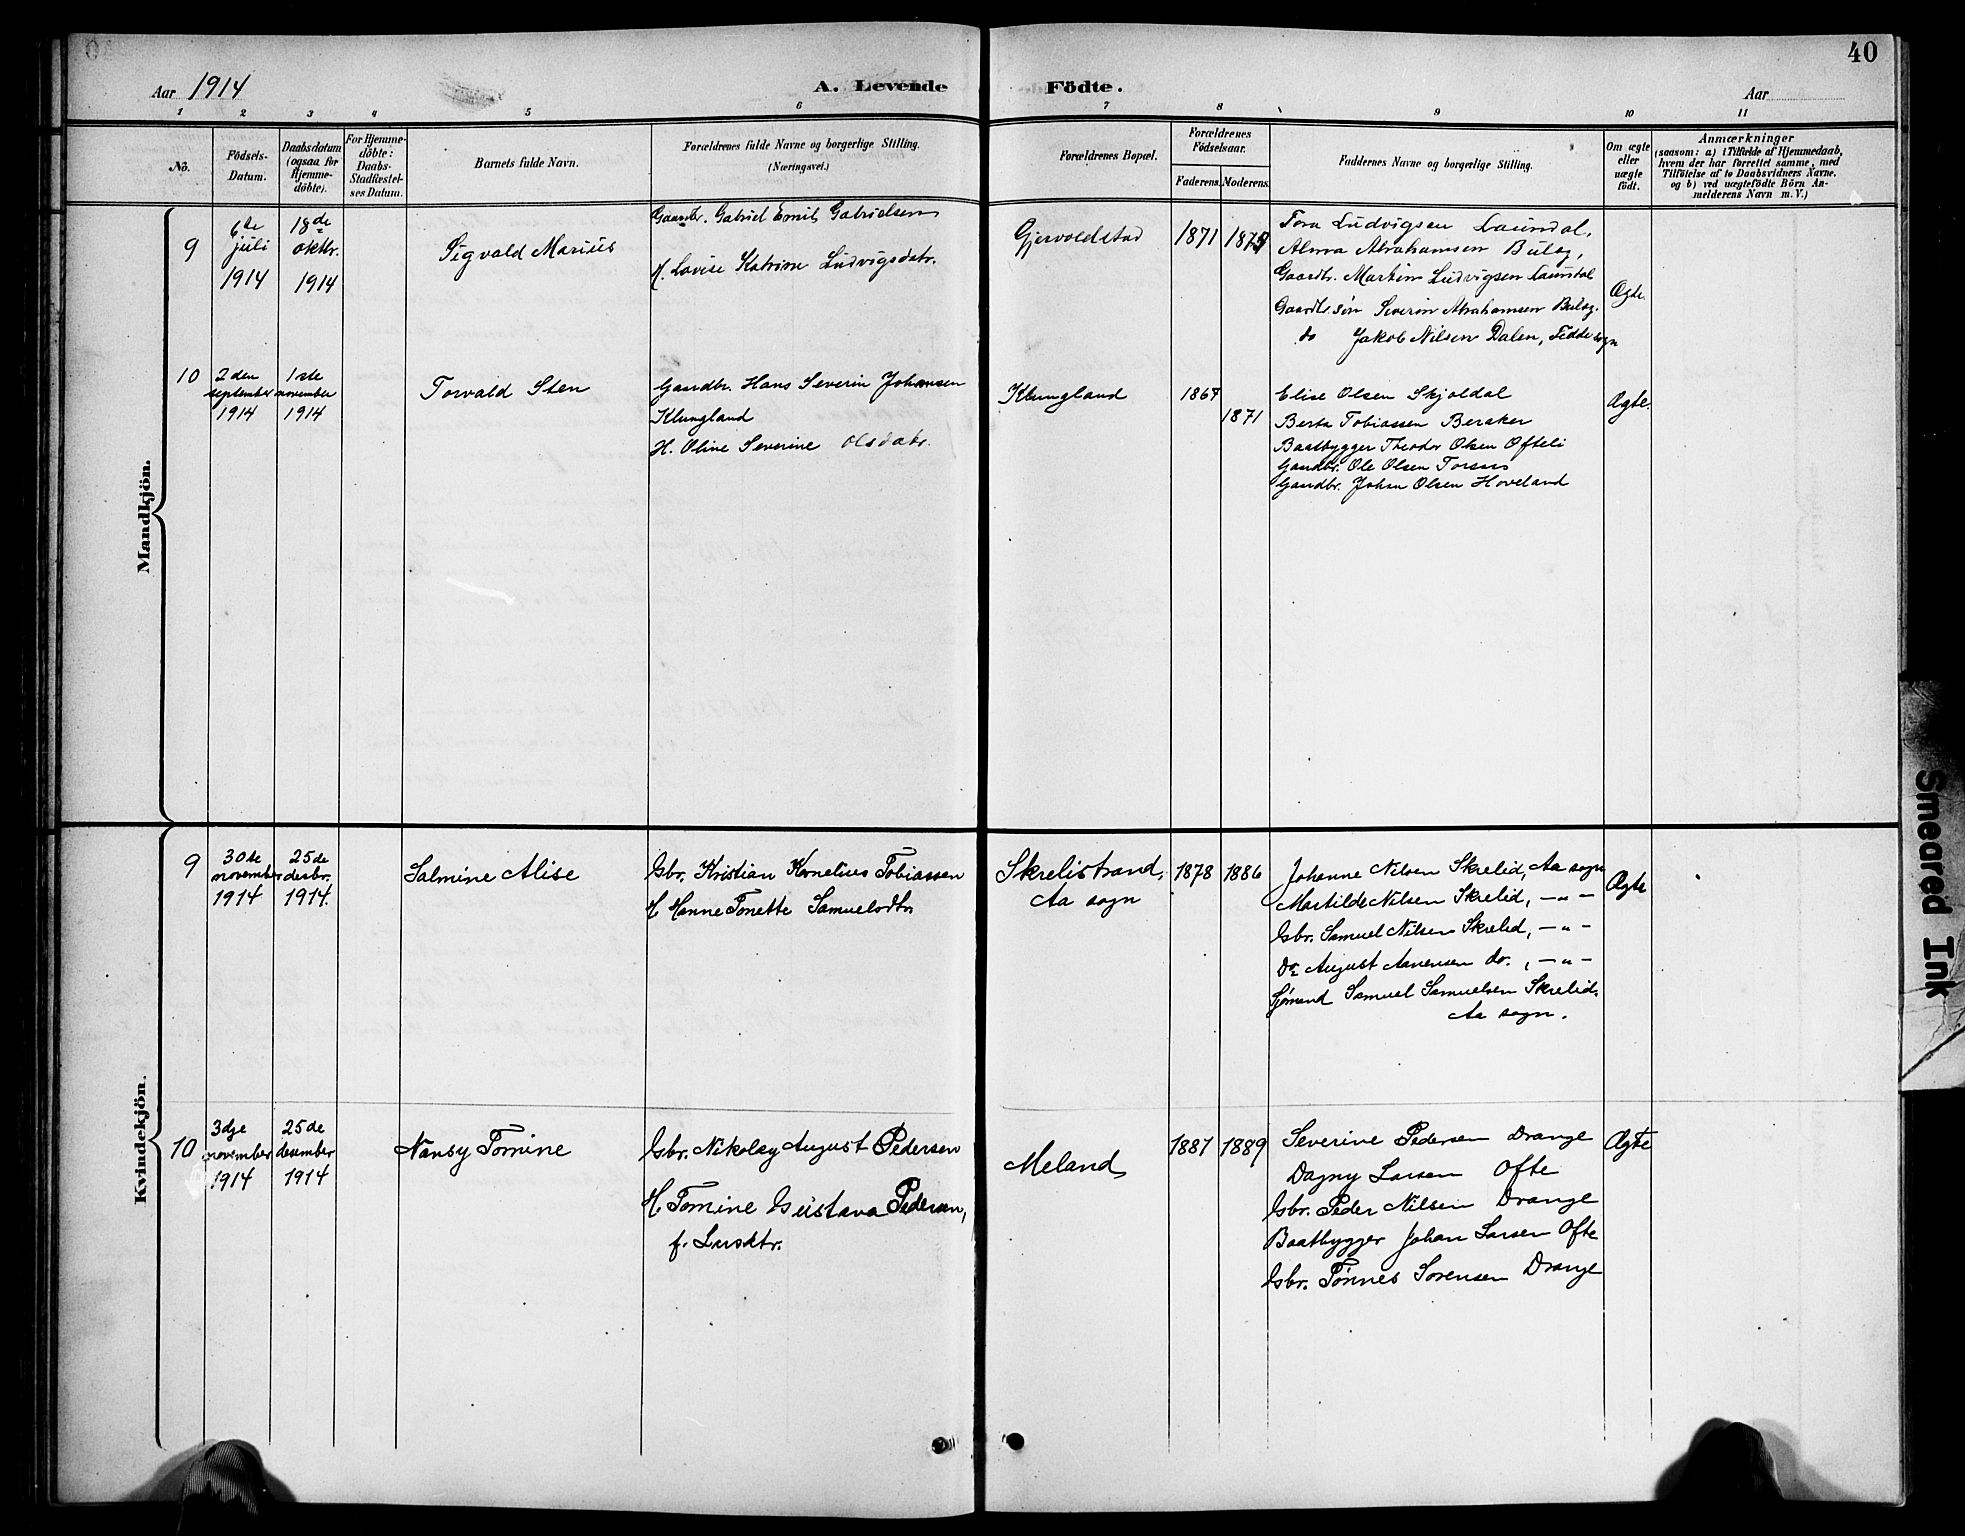 40
Aar 1914
A. Levende Födte.
Aar
1 2 3 4 5 6 7 8 9 10 11
No.
Födsels-Datum.
Daabsdatum (ogsaa for Hjemmedöbte).
For Hjemmedöbte: Daabs-Stadfæstelses Datum.
Barnets fulde Navn.
Forældrenes fulde Navne og borgerlige Stilling. (Næringsvei.)
Forældrenes Bopæl.
Forældrenes Födselsaar.
Faderens. Moderens.
Faddernes Navne og borgerlige Stilling.
Om ægte eller uægte födt.
Anmærkninger
(saasom: a) i Tilfælde af Hjemmedaab, hvem der har forrettet samme, med Tilföielse af to Daabsvidners Navne, og b) ved uægtefödte Börn Anmelderens Navn m. V.)
Mandkjön.
9
6te juli 1914
18de oktbr. 1914
Sigvald Marius
Gaardbr. Gabriel Emil Gabrielsen
H. Lovise Katrine Ludvigsdatr.
Gjervoldstad
1871
Tora Ludvigsen Laundal,
Alma Abrahamsen Buløg,
Gaardbr. Martin Ludvigsen Laundal
Gaardbr. søn Severin Abrahamsen Buløg.
do Jakob Nilsen Dalen, Feddesogn
Ægte.
10
2den september 1914
1ste november 1914
Torvald Sten
Gaardbr. Hans Severin Johansen
Klungland
H. Oline Severine Olsdatr.
Klungland
1867
1871
Elise Olsen Skjoldal
Berta Tobiassen Beraker
Baatbygger Theodor Olsen Ofteli
Gaardbr. Ole Olsen
Gaardbr. Johan Olsen Hoveland
Ægte.
Kvindekjön.
9
30te november 1914
25de desbr. 1914.
Salmine Alise
Gbr. Kristian Kornelius Tobiassen
H Hanne Tonette Samuelsdtr.
Skrelistrand,
Aa sogn
1878 1886
Johanne Nilsen Skrelid, Aa sogn
Martilde Nilsen Skrelid, — „ —
Gbr. Samuel Nilsen Skrelid, — „ —
Do August Aanensen do., — „ —
Sjømand Samuel Samuelsen Skrelid,
Aa sogn.
Ægte
10
3dje november 1914
25de desember 1914
Nansy Tomine
Gbr. Nikolay August Pedersen
H Tomine Gustava Pedersen,
f. Larsdtr.
Meland
1887 1889
Severine Pedersen Drange
Dagny Larsen Ofte
Gbr. Peder Nilsen Drange
Baatbygger Johan Larsen Ofte
Gbr. Tønnes Sørensen Drange
Ægte
Smeared Ink